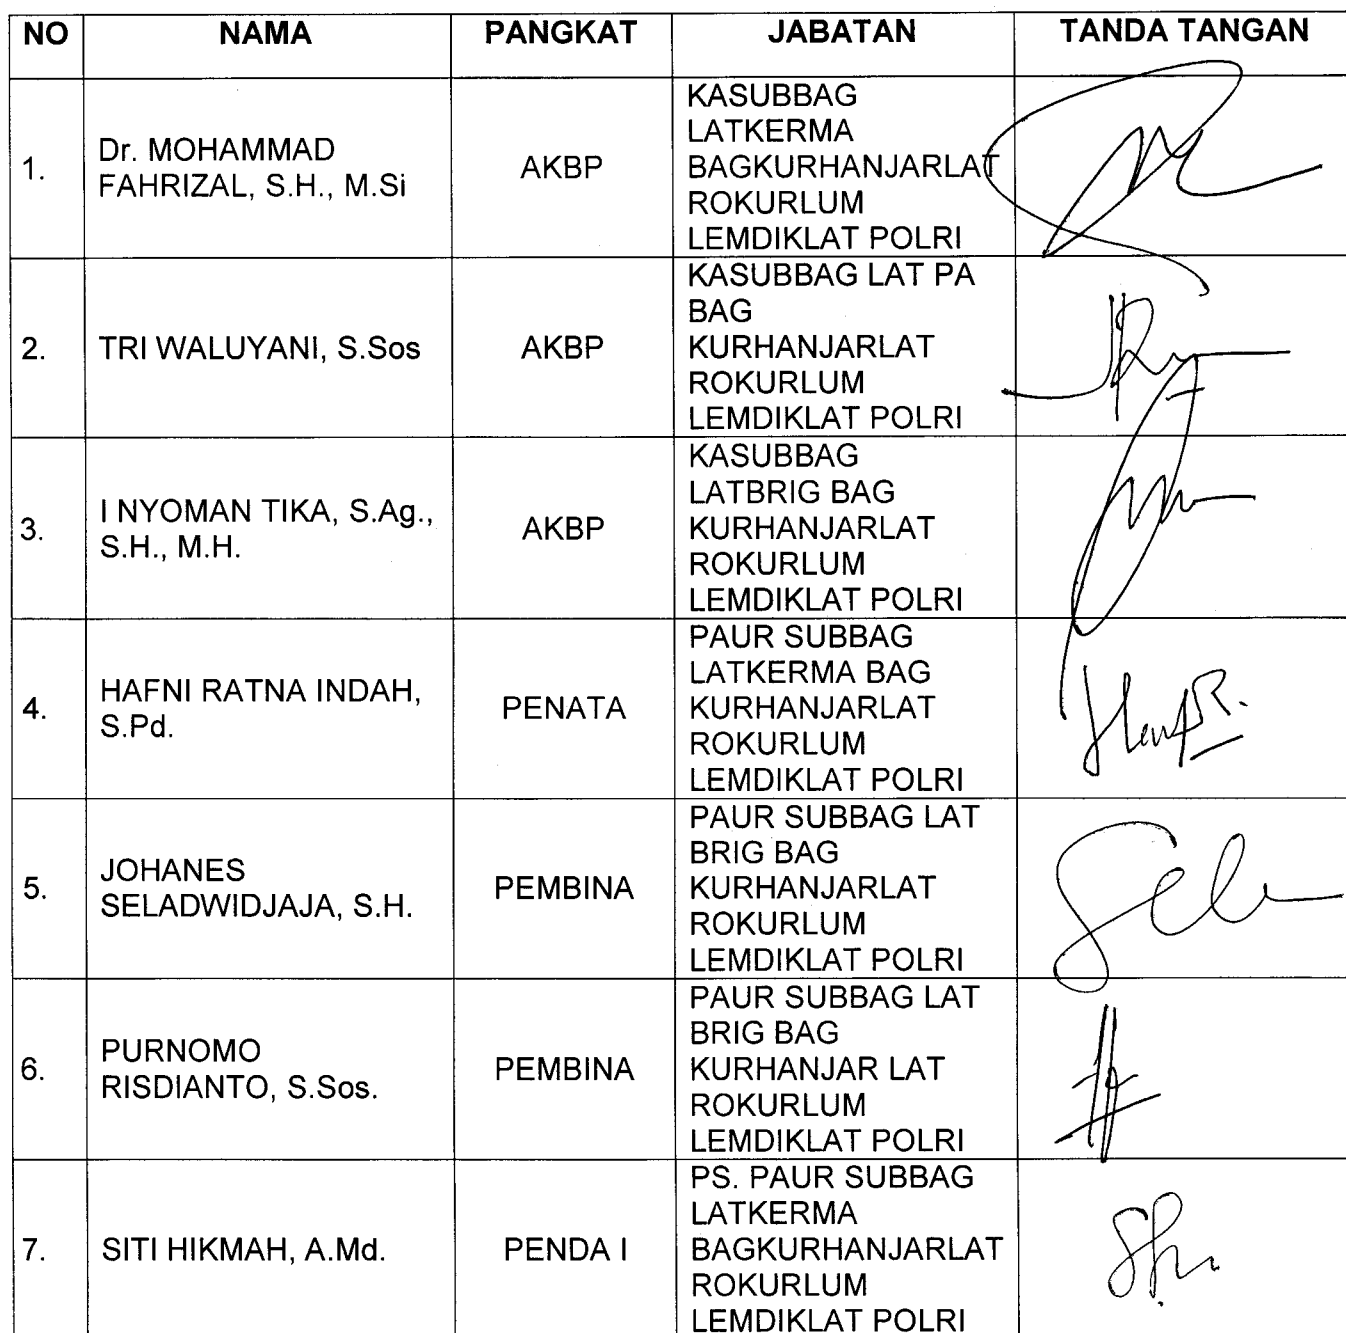 NO NAMA PANGKAT JABATAN TANDA TANGAN
1. Dr. MOHAMMAD FAHRIZAL, S.H., M.Si AKBP KASUBBAG
LATKERMA
BAGKURHANJARLAT
ROKURLUM
LEMDIKLAT POLRI
2. TRI WALUYANI, S.Sos AKBP KASUBBAG LAT PA
BAG
KURHANJARLAT
ROKURLUM
LEMDIKLAT POLRI
3. I NYOMAN TIKA, S.Ag., S.H., M.H. AKBP KASUBBAG
LATBRIG BAG
KURHANJARLAT
ROKURLUM
LEMDIKLAT POLRI
4. HAFNI RATNA INDAH, S.Pd. PENATA PAUR SUBBAG
LATKERMA BAG
KURHANJARLAT
ROKURLUM
LEMDIKLAT POLRI
5. JOHANES SELADWIDJAJA, S.H. PEMBINA PAUR SUBBAG LAT
BRIG BAG
KURHANJARLAT
ROKURLUM
LEMDIKLAT POLRI
6. PURNOMO RISDIANTO, S.Sos. PEMBINA PAUR SUBBAG LAT
BRIG BAG
KURHANJAR LAT
ROKURLUM
LEMDIKLAT POLRI
7. SITI HIKMAH, A.Md. PENDA I PS. PAUR SUBBAG
LATKERMA
BAGKURHANJARLAT
ROKURLUM
LEMDIKLAT POLRI